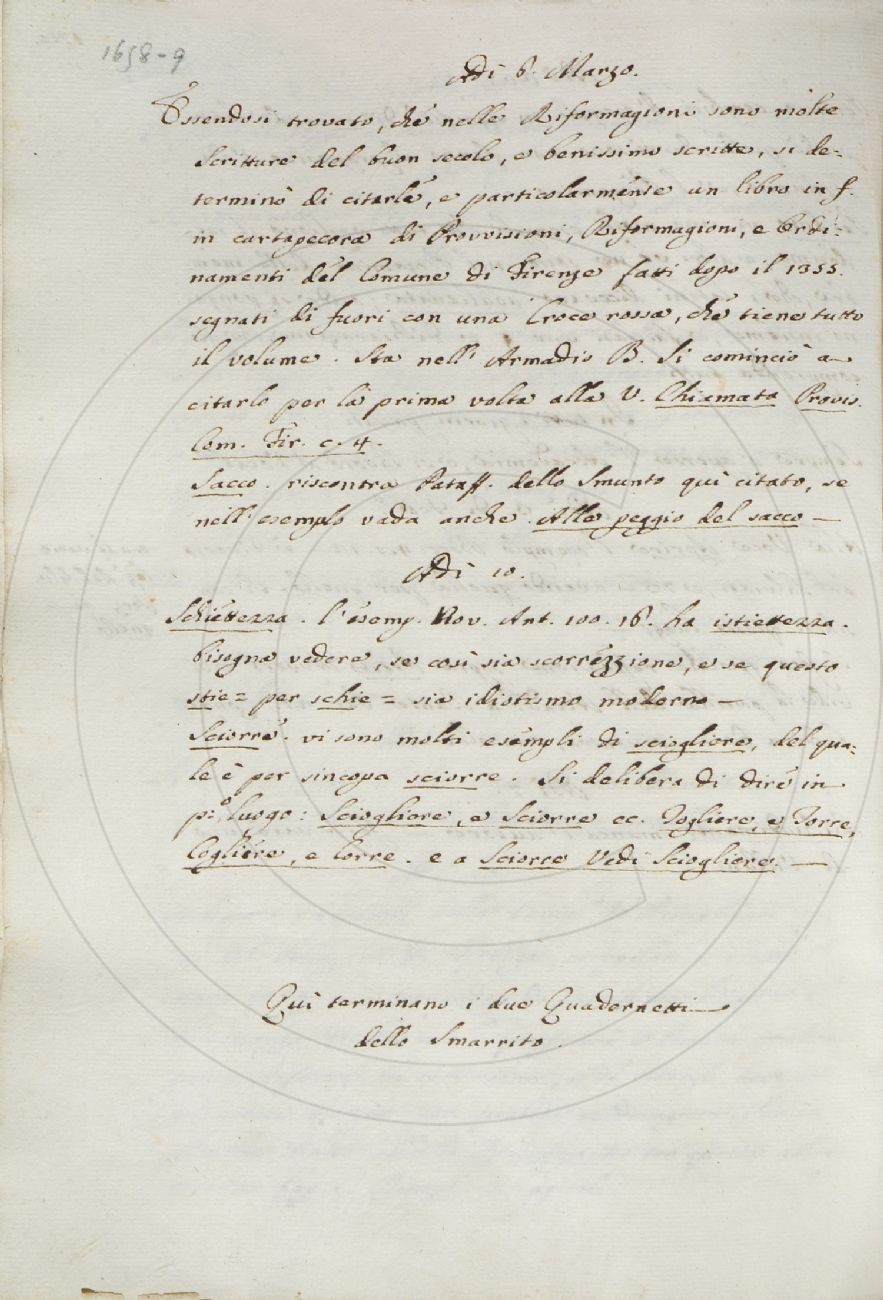 1658-9
Adì 6. Marzo.
Essendosi trovato, che nelle Riformagioni sono molte
Scritture del buon secolo, e benissimo scritte, si de=
terminò di citarle, e particolarmente un libro in f.
in cartapecora di Provvisioni, Riformagioni, e Ordi=
namenti del Comune di Firenze fatti dopo il 1355.
segnati di fuori con una Croce rossa, che tiene tutto
il volume. Sta nell' Armadio B. Si cominciò a
citarlo per la prima volta alla V. Chiamata Provis.
Com. Fir. c. 4.
Sacco. riscontra Pataff. dello Smunto quì citato, se
nell' esemplo vada anche. Alle peggio del sacco —
Adì 10.
Schiettezza. l'esemp. Nov. Ant. 100. 16. ha istiettezza.
bisogna vedere, se così sia scorrezzione, e se questo
stie= per schie= sia idiotismo moderno —
Sciorre. vi sono molti esempli di sciogliere, del qua=
le è per sincopa sciorre. Si delibera di dire in
p:º luogo: Sciogliere, e Sciorre ec. Togliere, e Torre,
Cogliere, e Corre. e a Sciorre Vedi Sciogliere. —
Quì terminano i due Quadernetti —
dello Smarrito.